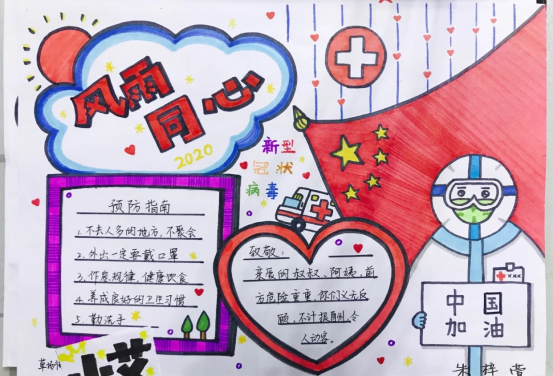 风雨
同心
2020
新型
冠状
病毒
预防指南
1. 不去人多的地方,不聚会
2. 外出一定要戴口罩
3. 作息规律,健康饮食
4. 养成良好的卫生习惯
5. 勤洗手
致敬:
亲爱的叔叔、阿姨,前
方危险重重,你们义无反
顾,不计报酬,令
人动容。
中国
加油
朱梓萱